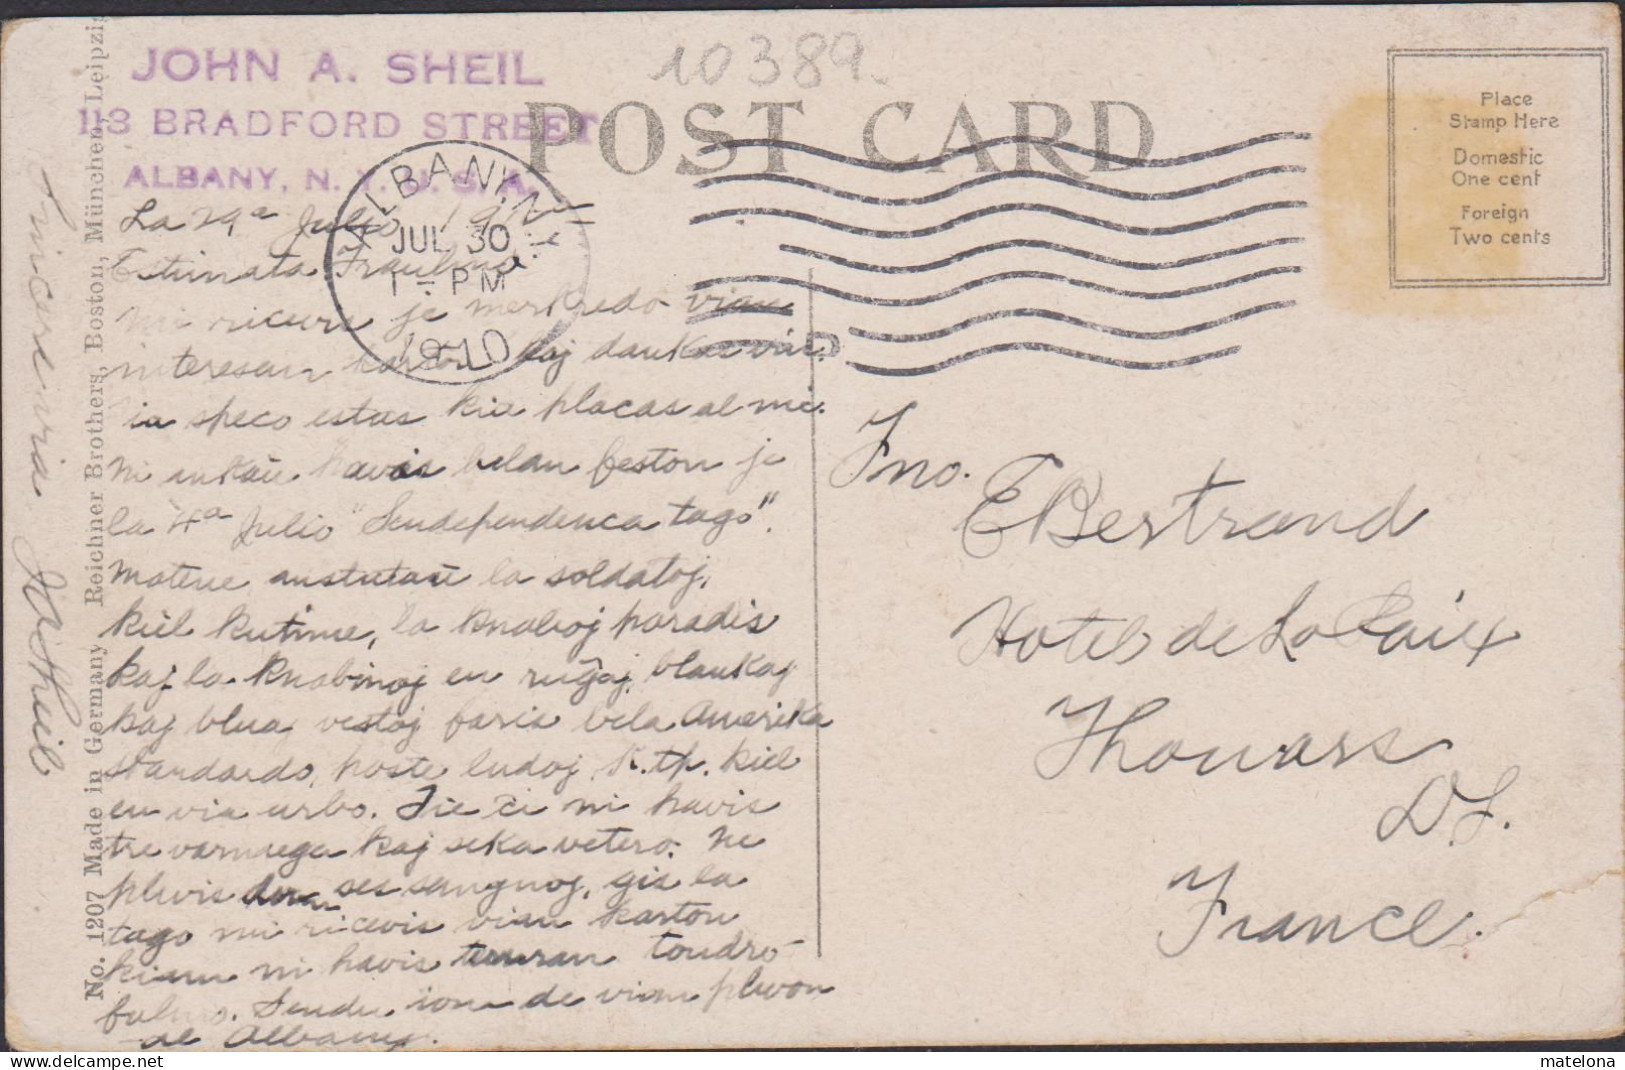 10389.
JOHN A. SHEIL
113 BRADFORD STREET
ALBANY, N. Y. U. S. A.
POST CARD
Place
Stamp Here
Domestic
One cent
Foreign
Two cents
ALBANY, N.Y.
JUL 30
1 - PM
1910
La 29a Julio
Estimata Fraulino
mi ricevis je merkredo vian
interesan karton kaj dankas vin.
speco estas kiu placas al mi.
Ni ankaŭ havis belan feston je
la 4a Julio "Sendependenca tago".
Matene anstataŭ la soldatoj,
kiel kutime, la knaboj paradis
kaj la knabinoj en ruĝaj, blankaj
kaj blua vestoj faris bela Amerika
standardo, poste ludoj, k.tp. kiel
en via urbo. Tie ĉi ni havis
tre varmega kaj seka vetero. Ne
pluvis dum ses semajnoj, gis la
tago mi ricevis vian karton
kiam ni havis teruran tondro-
fulmo. Sendu iom de vian pluvon
al Albany.
Sincere via
J A Sheil
Fino.
E Bertrand
Hotel de La Paix
Thouars
D S.
France.
No. 1207 Made in Germany Reichner Brothers, Boston, München, Leipzig
matelona